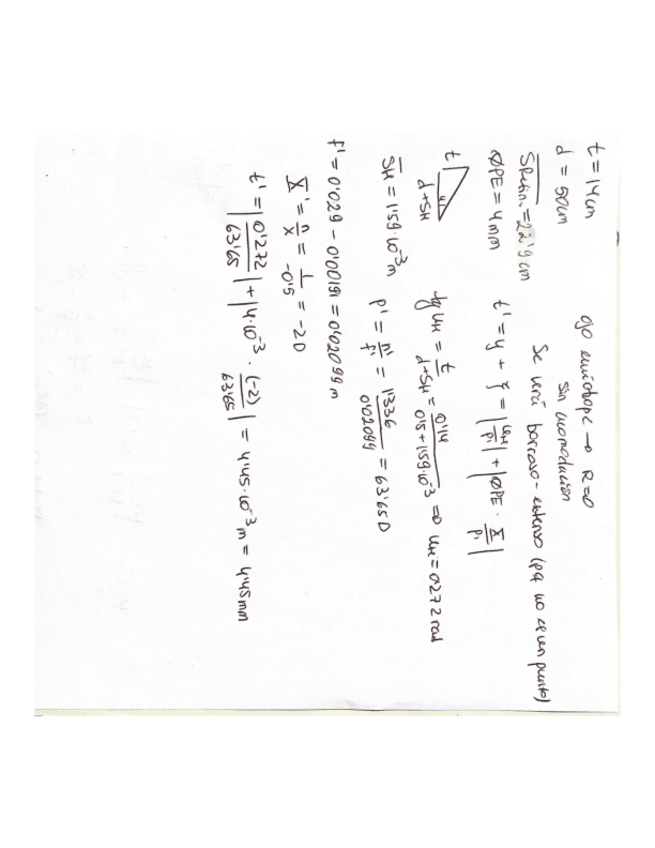 t = 14 cm
d = 50 cm
S̅Retin. = 22'9 cm
ØPE = 4 mm
ojo emétrope → R=0
sin acomodación
Se verá borroso - extenso (pq no es un punto)
t' = y + ξ = |uH / P'| + |ØPE · X̅ / P'|
t
u
d+SH
tg uH = t / d+SH = 0'14 / 0'5+1'59·10⁻³ => uH = 0'272 rad
S̅H = 1'59·10⁻³ m
P' = n' / f' = 1'336 / 0'02099 = 63'65 D
f' = 0'029 - 0'00191 = 0'02099 m
X̅' = n / x = 1 / -0'5 = -2 D
t' = |0'272 / 63'65| + |4·10⁻³ · (-2) / 63'65| = 4'45·10⁻³ m = 4'45 mm